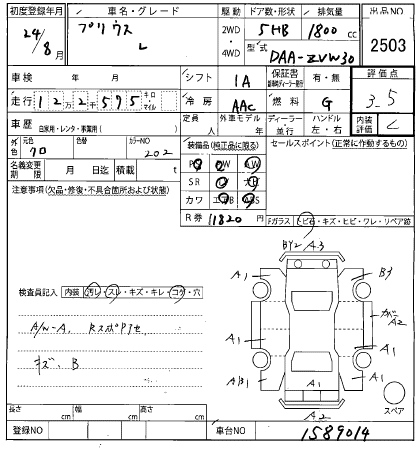 初度登録年月 車名・グレード 駆動 ドア数・形状 排気量 出品NO
24/8月 プリウス L 2WD・4WD 5HB 1800cc 2503
型式 DAA-ZVW30
車検 年 月 シフト IA 保証書 有・無 評価点
走行 12万2千595 キロ・マイル 冷房 AAC 燃料 G 3.5
車歴 自家用・レンタ・事業用( ) 定員 人 外車モデル 年 ディーラー・並行 ハンドル 左・右 内装評価 C
外色 元色 クロ 色替 カラーNO 202 装備品(純正品に限る) セールスポイント(正常に作動するもの)
名義変更期限 月 日迄 積載 t
PS PW AW
SR
カワ エアB ABS
注意事項(欠品・修復・不具合箇所および状態)
R券 11820円 Fガラス トビ石・キズ・ヒビ・ワレ・リペア跡
BY2 A3
A1 B3
検査員記入 内装 汚レ・スレ・キズ・キレ・コゲ・穴
A1 A2
A/W-A、RスポPｱセ
A1 A1
キズ、B
A/B1 A1 A1
A2 スペア
長さ cm 幅 cm 高さ cm
登録NO 車台NO 1589014